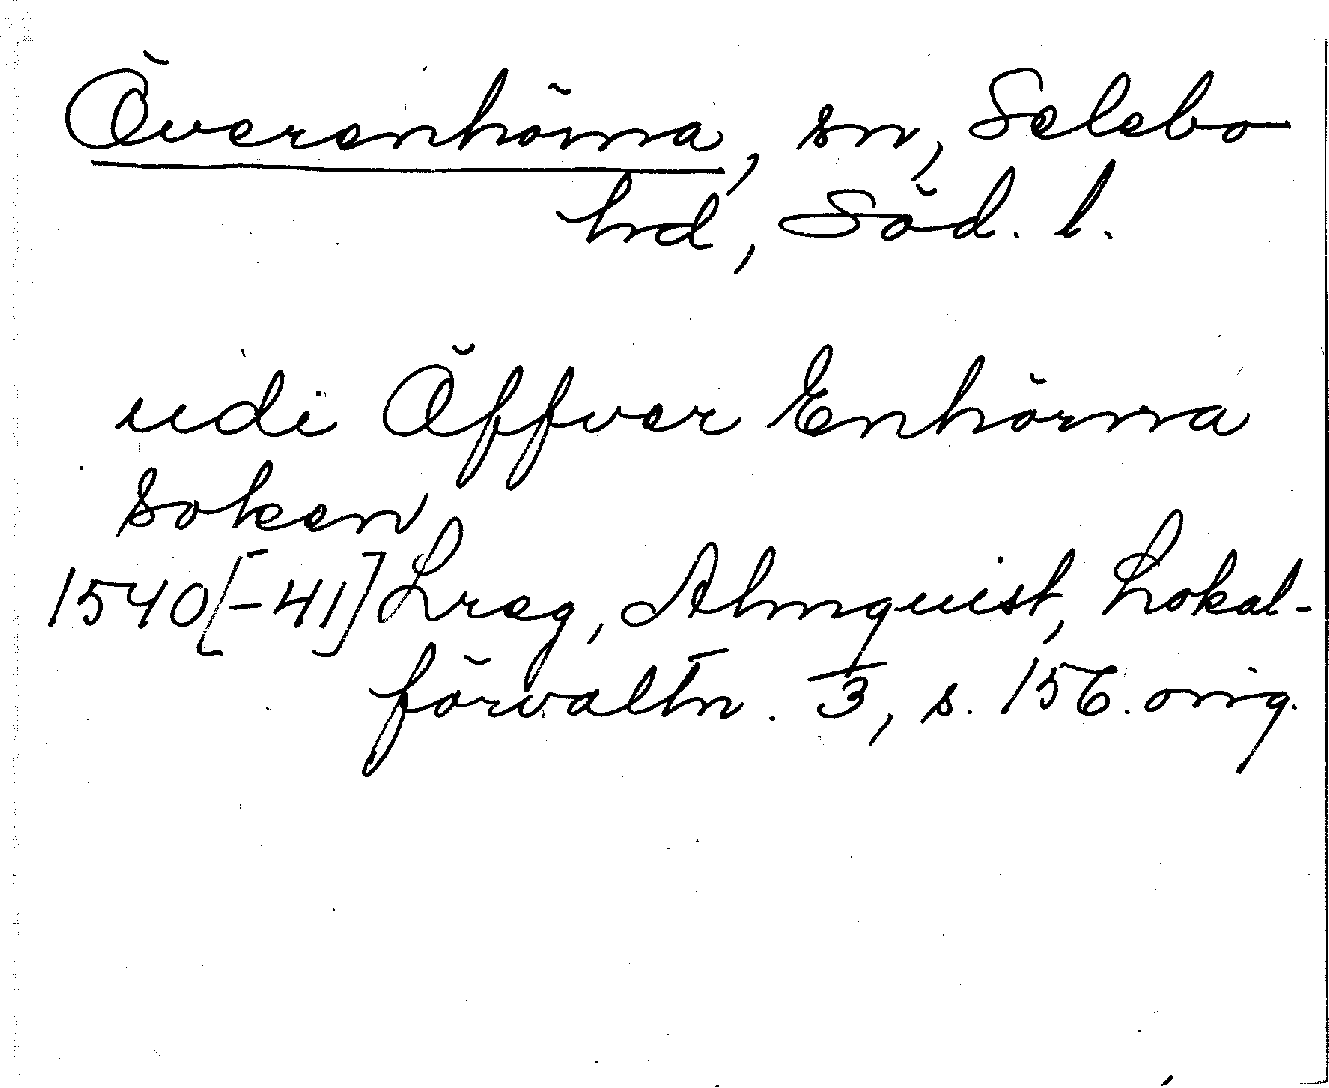 Överenhörna, sn, Selebo
hd, Söd. l.
udi Öffver Enhörna
soken
1540[-41] Lreg, Almquist, Lokal-
förvaltn. 3, s. 156. orig.